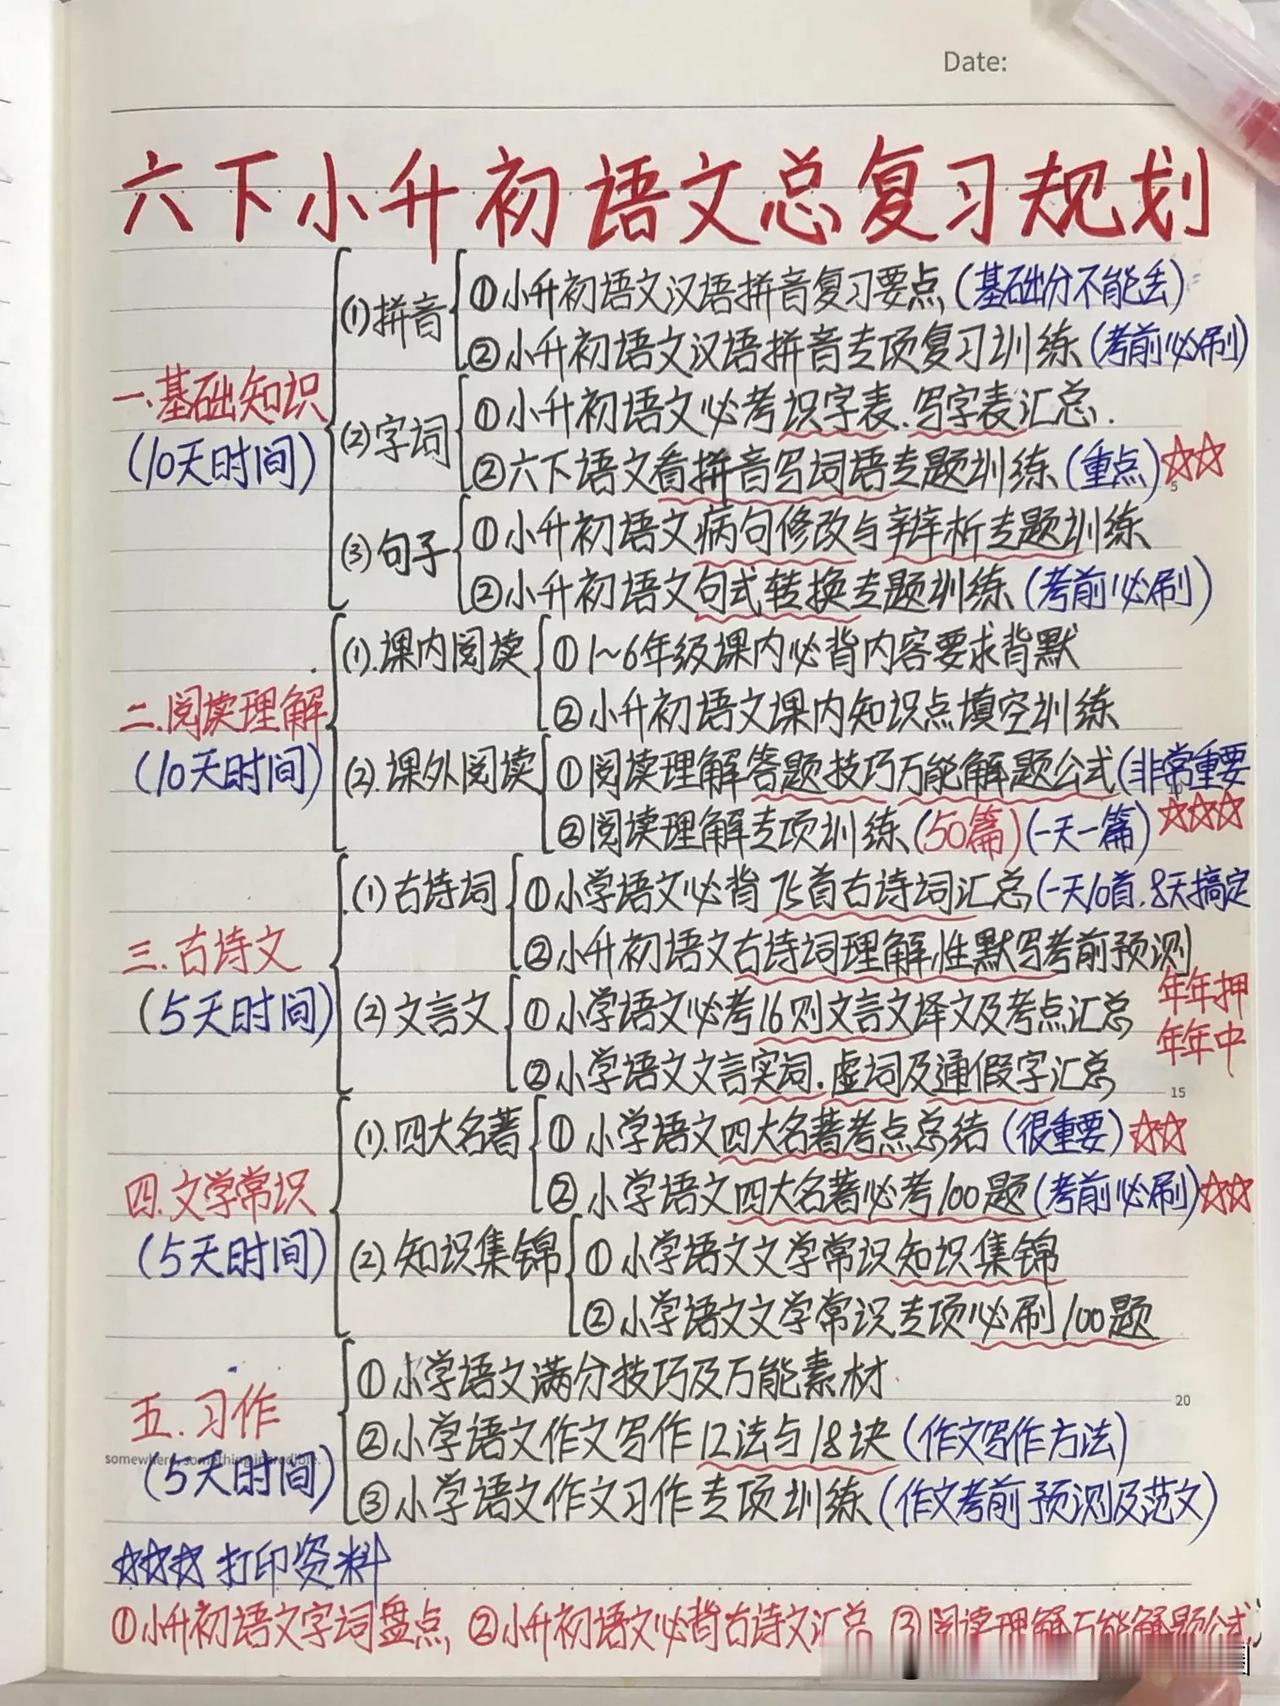 Date:
六下小升初语文总复习规划
一.基础知识
(10天时间)
(1)拼音
①小升初语文汉语拼音复习要点(基础分不能丢)
②小升初语文汉语拼音专项复习训练(考前必刷)
(2)字词
①小升初语文必考识字表.写字表汇总.
②六下语文看拼音写词语专题训练(重点)☆☆
5
(3)句子
①小升初语文病句修改与辨析专题训练
②小升初语文句式转换专题训练(考前必刷)
二.阅读理解
(10天时间)
(1).课内阅读
①1~6年级课内必背内容要求背默
②小升初语文课内知识点填空训练
(2).课外阅读
①阅读理解答题技巧万能解题公式(非常重要
☆☆☆
②阅读理解专项训练(50篇)(一天一篇)
三.古诗文
(5天时间)
(1)古诗词
①小学语文必背75首古诗词汇总(一天10首.8天搞定
②小升初语文古诗词理解性默写考前预测
年年押
年年中
(2)文言文
①小学语文必考16则文言文译文及考点汇总
②小学语文文言实词.虚词及通假字汇总
15
四.文学常识
(5天时间)
(1).四大名著
①小学语文四大名著考点总结(很重要)☆☆
②小学语文四大名著必考100题(考前必刷)☆☆
(2).知识集锦
①小学语文文学常识知识集锦
②小学语文文学常识专项必刷100题
五.习作
(5天时间)
somewhere, something incredible.
①小学语文满分技巧及万能素材
20
②小学语文作文写作12法与18诀(作文写作方法)
③小学语文作文习作专项训练(作文考前预测及范文)
☆☆☆打印资料
①小升初语文字词盘点,②小升初语文必背古诗文汇总 ③阅读理解万能解题公式